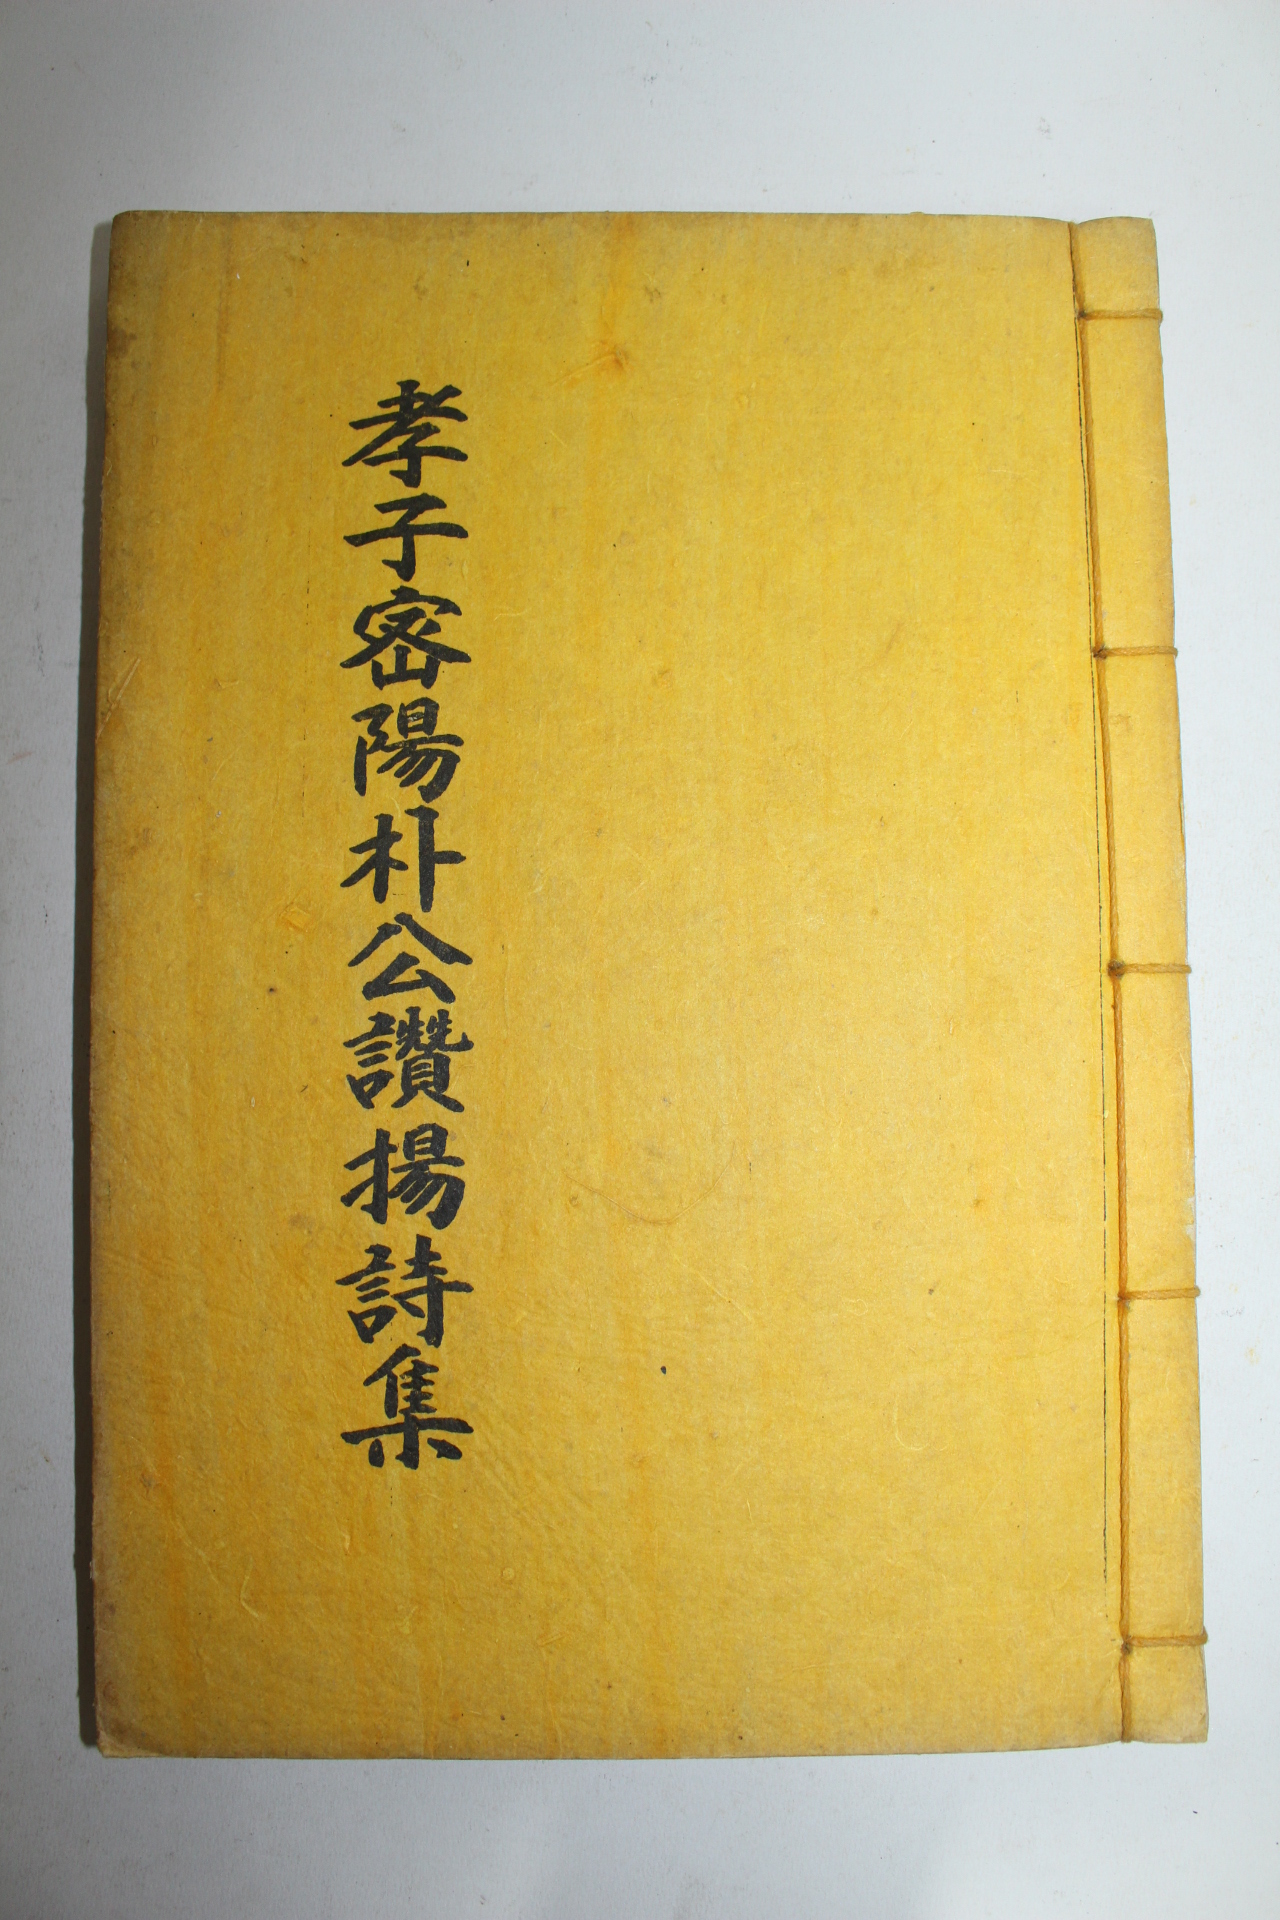 孝子密陽朴公讚揚詩集